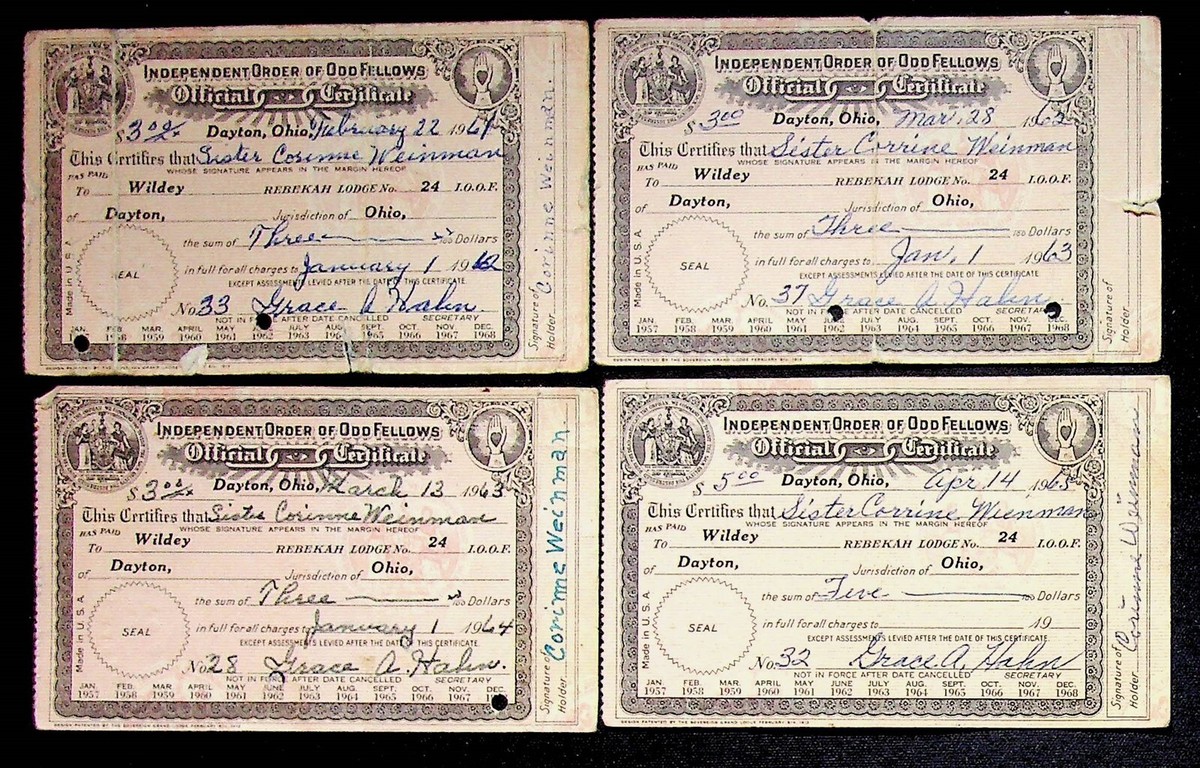 INDEPENDENT ORDER OF ODD FELLOWS
Official Certificate
$3.00 Dayton, Ohio, February 22 1961
This Certifies that Sister Corinne Weinman
WHOSE SIGNATURE APPEARS IN THE MARGIN HEREOF
HAS PAID
To Wildey REBEKAH LODGE No. 24 I.O.O.F.
of Dayton, Jurisdiction of Ohio,
the sum of Three Dollars
in full for all charges to January 1 1962
EXCEPT ASSESSMENTS LEVIED AFTER THE DATE OF THIS CERTIFICATE
SEAL
Made in U.S.A
No. 33 Grace A Hahn
NOT IN FORCE AFTER DATE CANCELLED SECRETARY
JAN. FEB. MAR. APRIL MAY JULY AUG. SEPT. OCT. NOV. DEC.
1958 1959 1960 1961 1962 1963 1964 1965 1966 1967 1968
Signature of Holder.
Corinne Weinman
INDEPENDENT ORDER OF ODD FELLOWS
Official Certificate
$3.00 Dayton, Ohio, Mar. 28 1962
This Certifies that Sister Corrine Weinman
WHOSE SIGNATURE APPEARS IN THE MARGIN HEREOF
HAS PAID
To Wildey REBEKAH LODGE No. 24 I.O.O.F.
of Dayton, Jurisdiction of Ohio,
the sum of Three Dollars
in full for all charges to Jan. 1 1963
EXCEPT ASSESSMENTS LEVIED AFTER THE DATE OF THIS CERTIFICATE
SEAL
Made in U.S.A
No. 37 Grace A. Hahn
NOT IN FORCE AFTER DATE CANCELLED SECRETARY
JAN. FEB. MAR. APRIL MAY JUNE JULY AUG. SEPT. OCT. NOV. DEC.
1957 1958 1959 1960 1961 1962 1963 1964 1965 1966 1967 1968
Signature of Holder.
DESIGN PATENTED BY THE SOVEREIGN GRAND LODGE FEBRUARY
INDEPENDENT ORDER OF ODD FELLOWS
Official Certificate
$3.00 Dayton, Ohio, March 13 1963
This Certifies that Sister Corinne Weinman
WHOSE SIGNATURE APPEARS IN THE MARGIN HEREOF
HAS PAID
To Wildey REBEKAH LODGE No. 24 I.O.O.F.
of Dayton, Jurisdiction of Ohio,
the sum of Three Dollars
in full for all charges to January 1 1964
EXCEPT ASSESSMENTS LEVIED AFTER THE DATE OF THIS CERTIFICATE.
SEAL
Made in U.S.A
No. 28 Grace A. Hahn.
NOT IN FORCE AFTER DATE CANCELLED SECRETARY
JAN. FEB. MAR. APRIL MAY JUNE JULY AUG. SEPT. OCT. NOV. DEC.
1957 1958 1959 1960 1961 1962 1963 1964 1965 1966 1967
Signature of Holder.
Corinne Weinman
DESIGN PATENTED BY THE SOVEREIGN GRAND LODGE FEBRUARY
INDEPENDENT ORDER OF ODD FELLOWS
Official Certificate
$5.00 Dayton, Ohio, Apr. 14 1965
This Certifies that Sister Corrine Wienman
WHOSE SIGNATURE APPEARS IN THE MARGIN HEREOF
HAS PAID
To Wildey REBEKAH LODGE No. 24 I.O.O.F.
of Dayton, Jurisdiction of Ohio,
the sum of Five Dollars
in full for all charges to 19
EXCEPT ASSESSMENTS LEVIED AFTER THE DATE OF THIS CERTIFICATE.
SEAL
Made in U.S.A
No. 32 Grace A. Hahn
NOT IN FORCE AFTER DATE CANCELLED SECRETARY
JAN. FEB. MAR. APRIL MAY JUNE JULY AUG. SEPT. OCT. NOV. DEC.
1957 1958 1959 1960 1961 1962 1963 1964 1965 1966 1967 1968
Signature of Holder.
Corinne Weinman
DESIGN PATENTED BY THE SOVEREIGN GRAND LODGE FEBRUARY